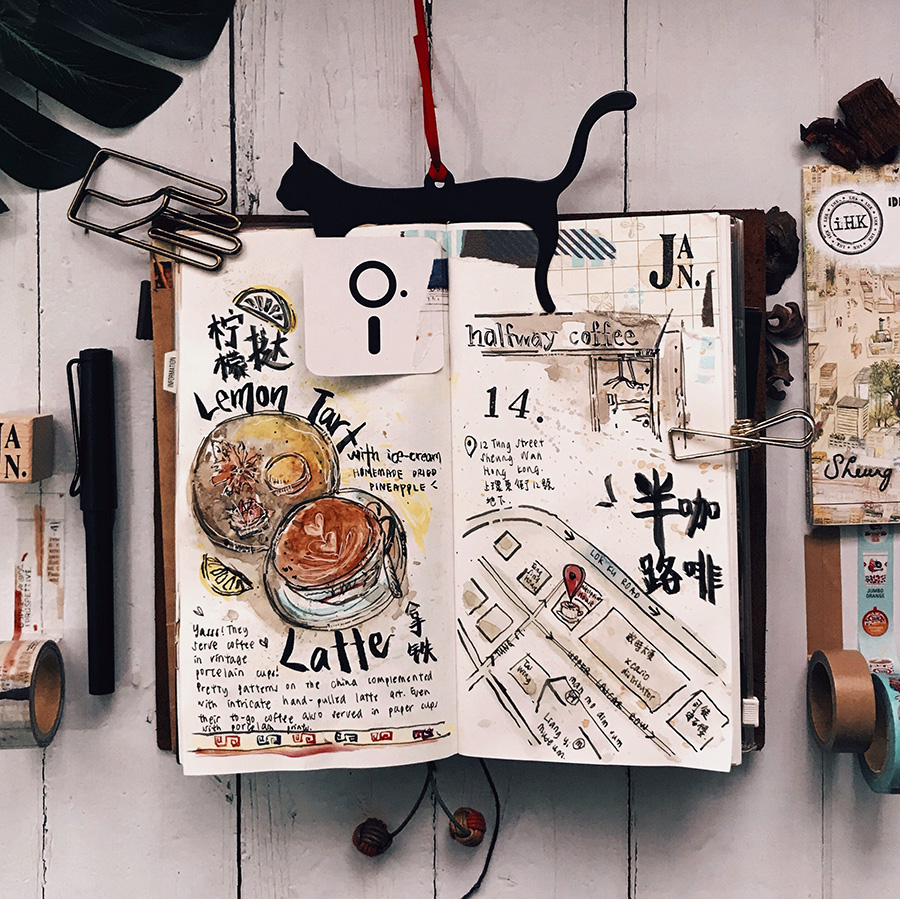 柠檬挞
Lemon Tart
with ice-cream
HOMEMADE DRIED
PINEAPPLE <
Latte
拿
铁
Yasss! They
serve coffee
in vintage
porcelain cups!
Pretty patterns on the china complemented
with intricate hand-pulled latte art. Even
their to-go coffee also served in paper cups
with porcelain prints.
JAN.
halfway coffee
14.
12 Tung Street
Sheung Wan
Hong Kong.
上環東街12號
地下.
半咖
路啡
LOK KU ROAD
UPPER LASCAR ROW
man mo dim sum
Liang Yi
Museum.
INFORMATION
A
N.
iHK
Sheung
JUMBO
ORANGE